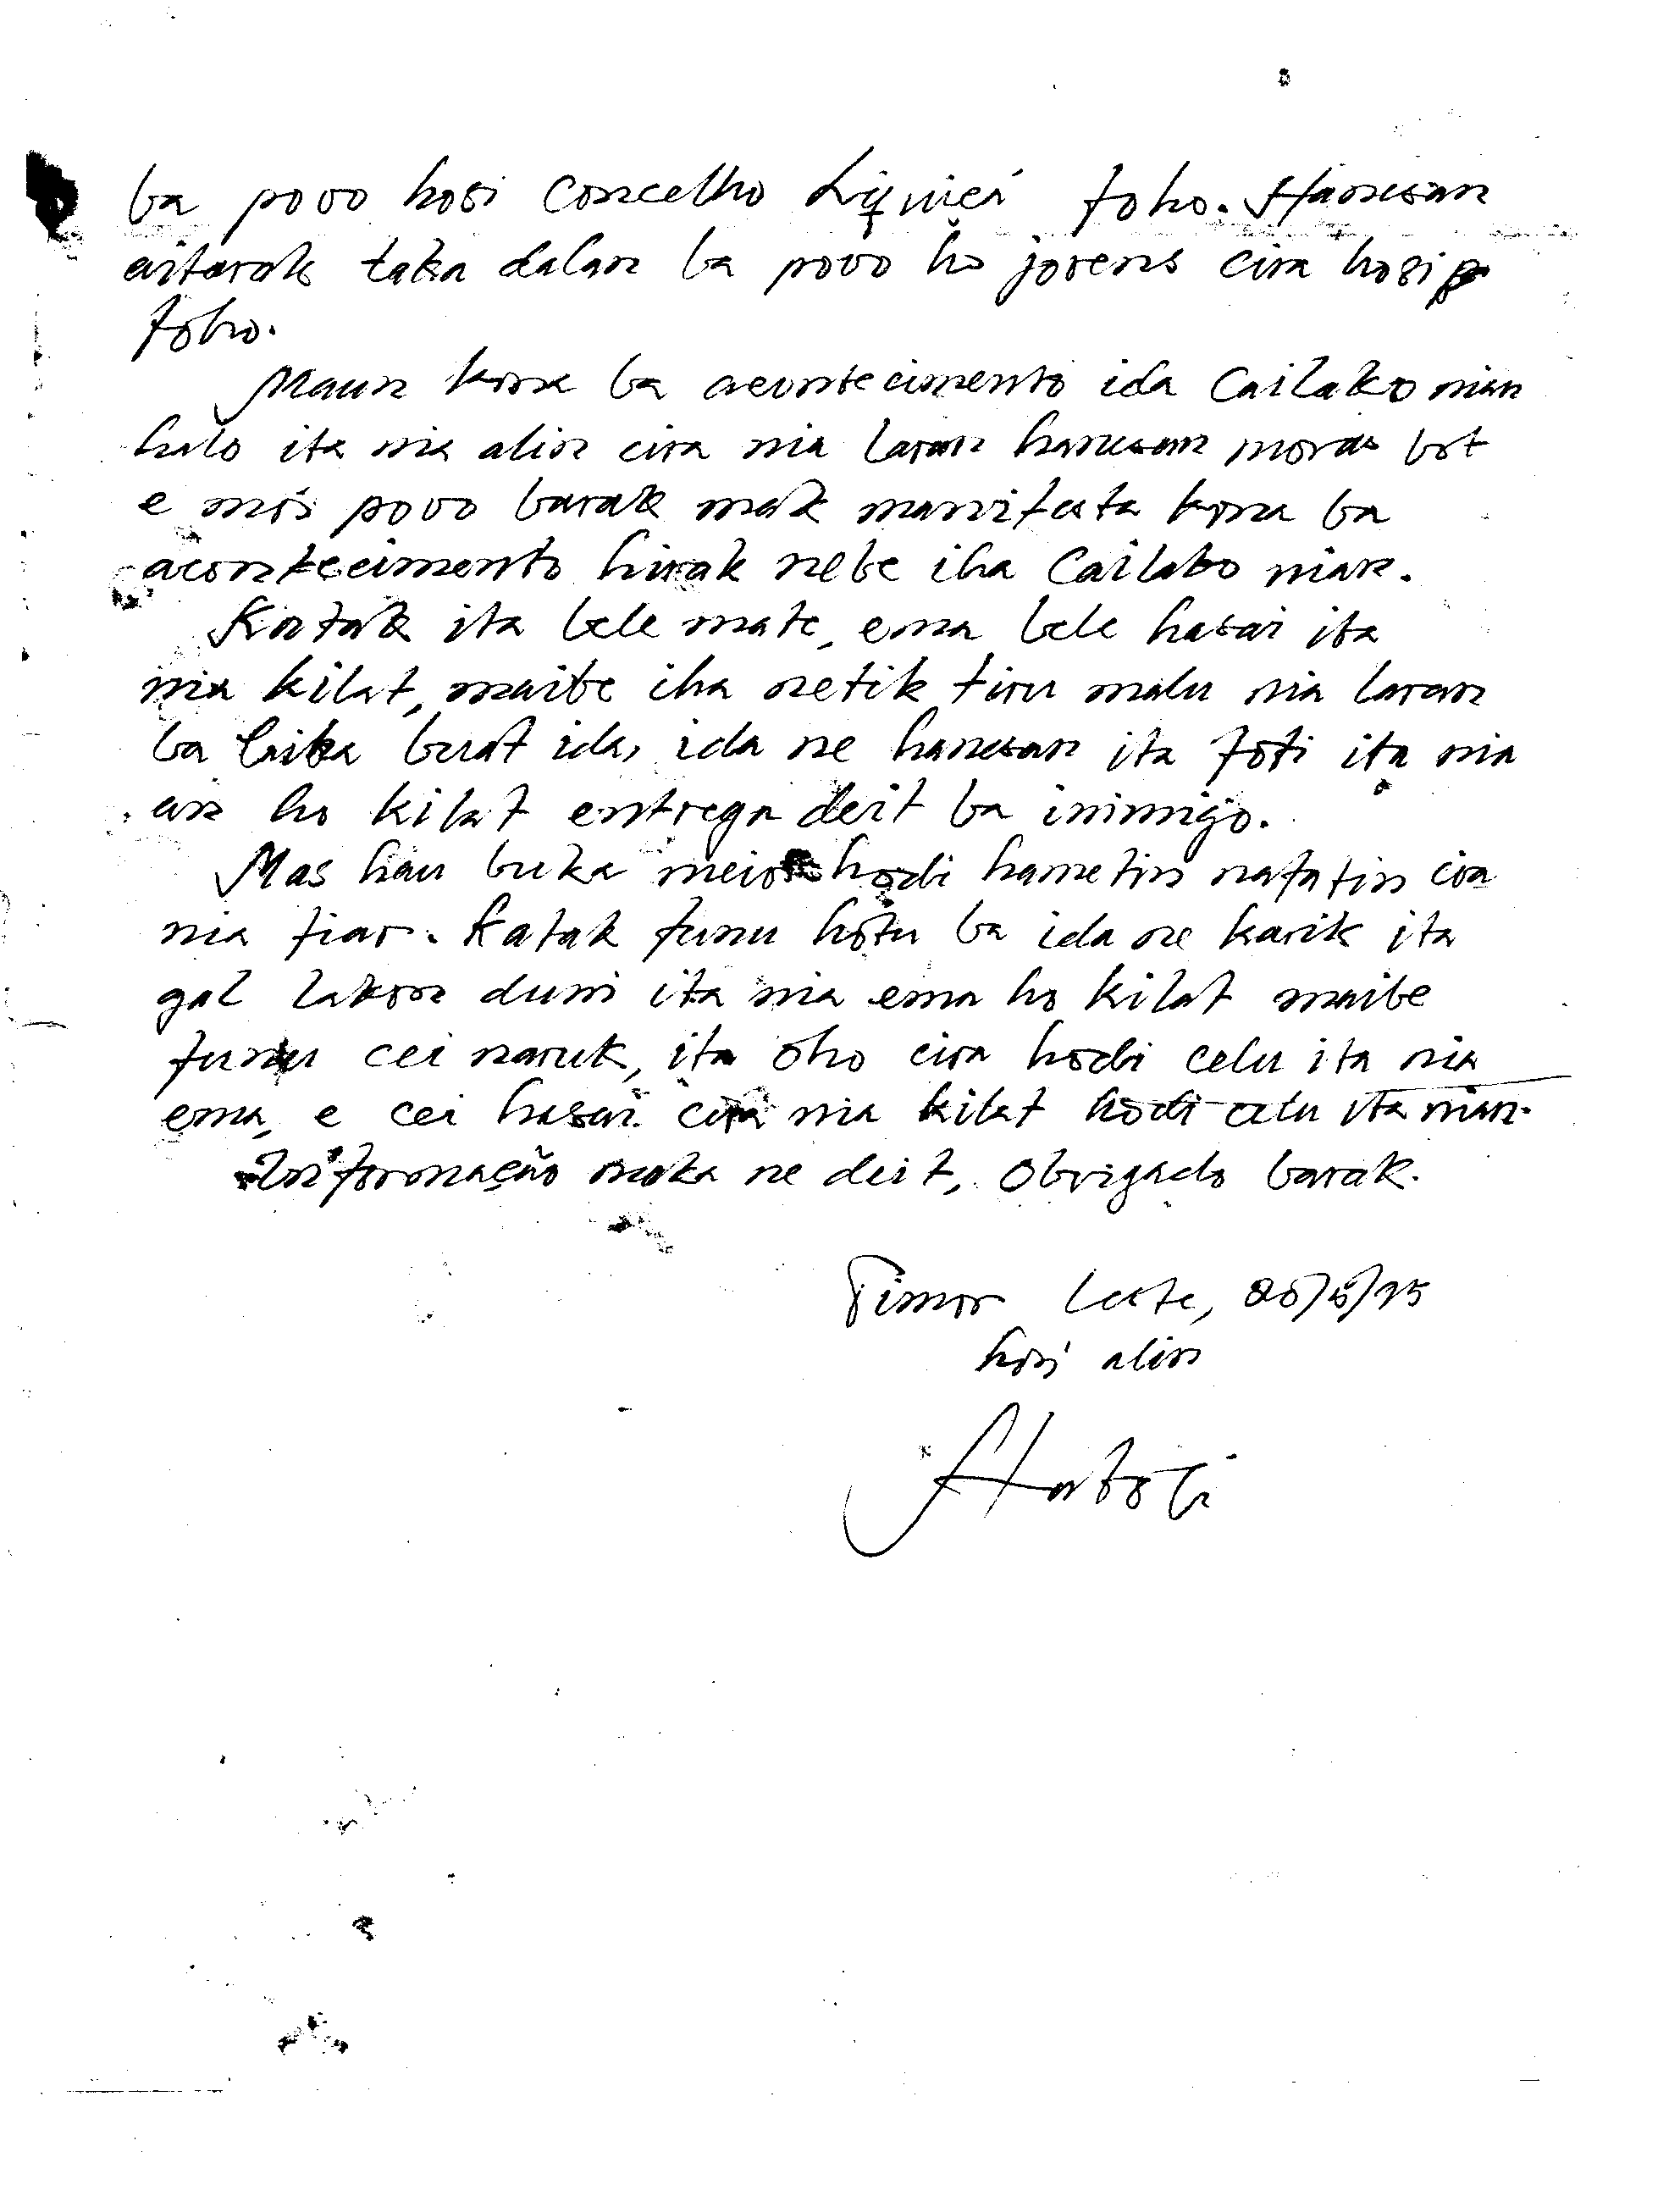 ba povo hosi Concelho Liquiçá foho. Hanesan
aitarak taka dalan ba povo ho jovens cira hosi
foho.
Maun kona ba acontecimento ida Cailako nian
halo ita nia alin cira nia laran hanesan moras bot
e mós povo barak mak manifesta kona ba
acontecimento hirak nebe iha Cailako nian.
Katak ita bele mate, ema bele hasai ita
nia kilat, maibe iha netik tiru malu nia laran
ba buat ida, ida ne hanesan ita foti ita nia
an ho kilat entrega deit ba inimigo.
Mas hau buka meios hodi hametin nafatin cira
nia fiar. Katak funu hotu ba ida ne karik ita
gal lakon duni ita nia ema ho kilat maibe
funu cei naruk, ita oho cira hodi celu ita nia
ema, e cei hasai cira nia kilat hodi celu ita nian.
Informação maka ne deit, Obrigado barak.
Timor Leste,
hosi alin